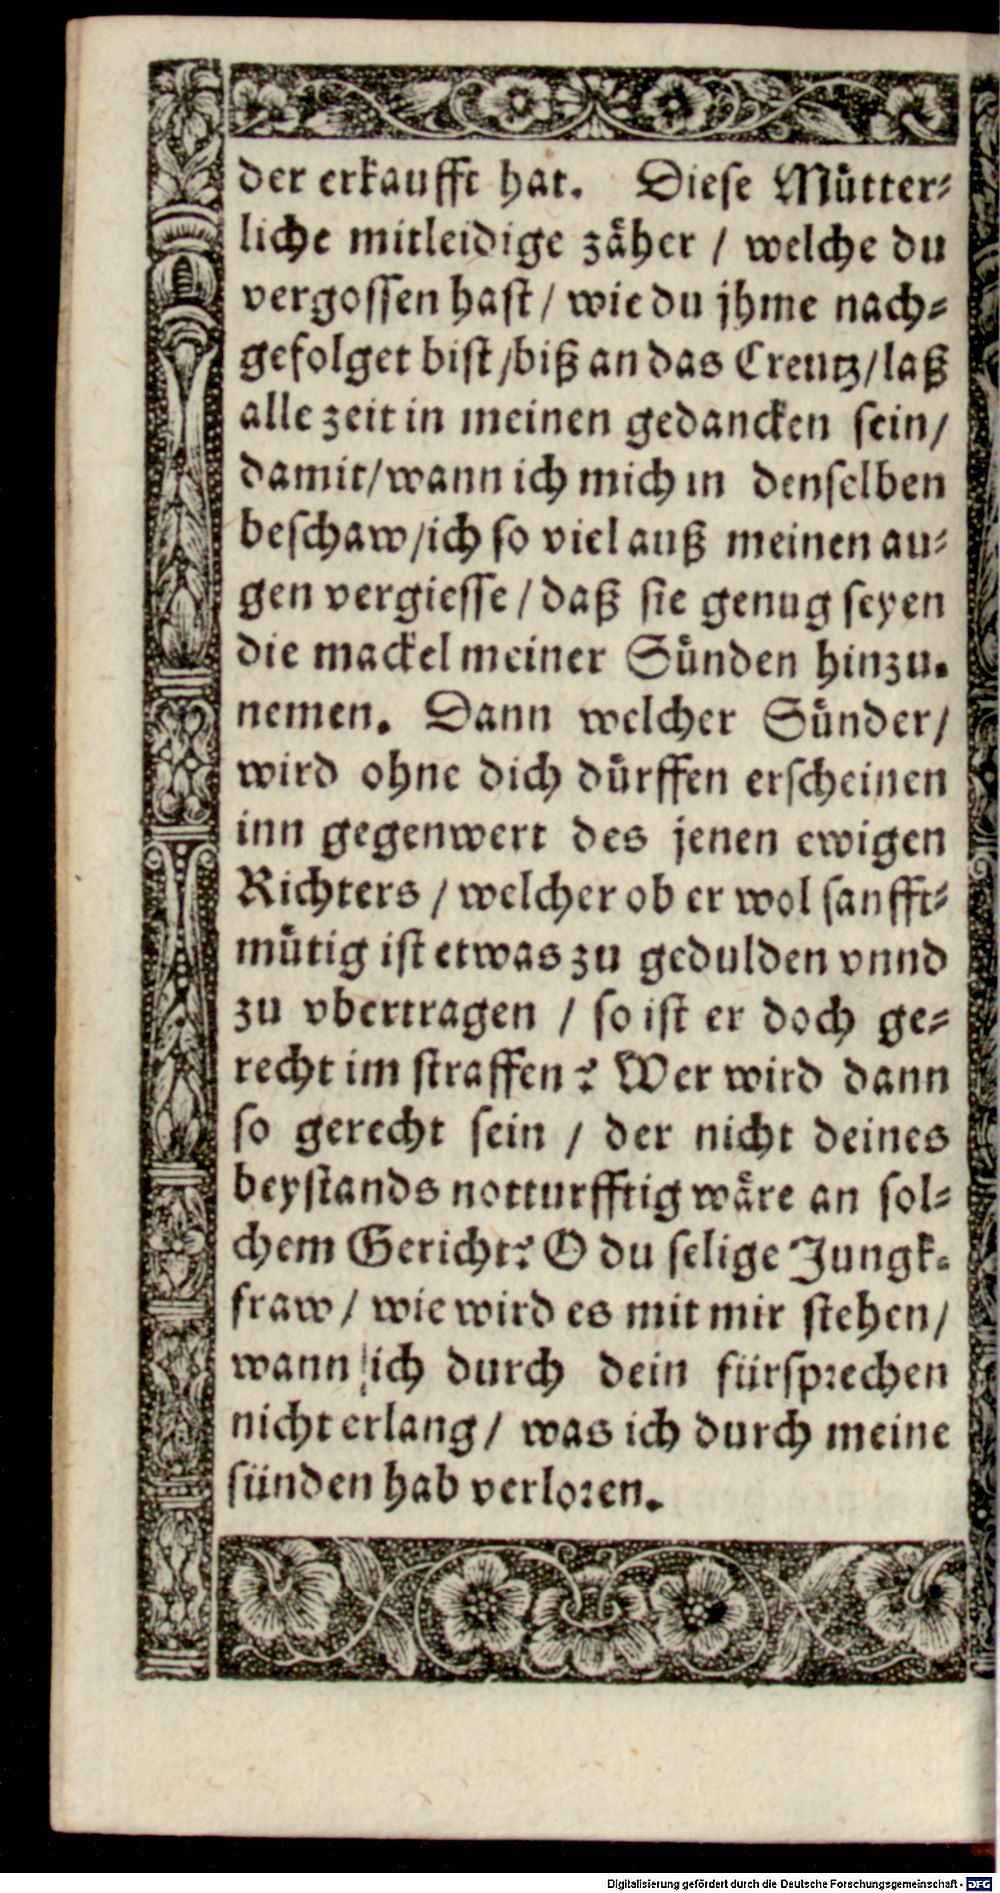 der erkaufft hat. Diese Muͤtter⸗
liche mitleidige zaͤher / welche du
vergossen hast / wie du jhme nach⸗
gefolget bist /biß an das Creutz / laß
alle zeit in meinen gedancken sein /
damit / wann ich mich in denselben
beschaw / ich so viel auß meinen au⸗
gen vergiesse / daß sie genug seyen
die mackel meiner Suͤnden hinzu.
nemen. Dann welcher Suͤnder /
wird ohne dich duͤrffen erscheinen
inn gegenwert des jenen ewigen
Richters / welcher ob er wol sanfft⸗
muͤtig ist etwas zu gedulden vnnd
zu vbertragen / so ist er doch ge⸗
recht im straffen? Wer wird dann
so gerecht sein / der nicht deines
beystands notturfftig waͤre an sol⸗
chem Gericht? O du selige Jungk⸗
fraw / wie wird es mit mir stehen /
wann ich durch dein fürsprechen
nicht erlang / was ich durch meine
sünden hab verloren.
Digitalisierung gefördert durch die Deutsche Forschungsgemeinschaft - DFG